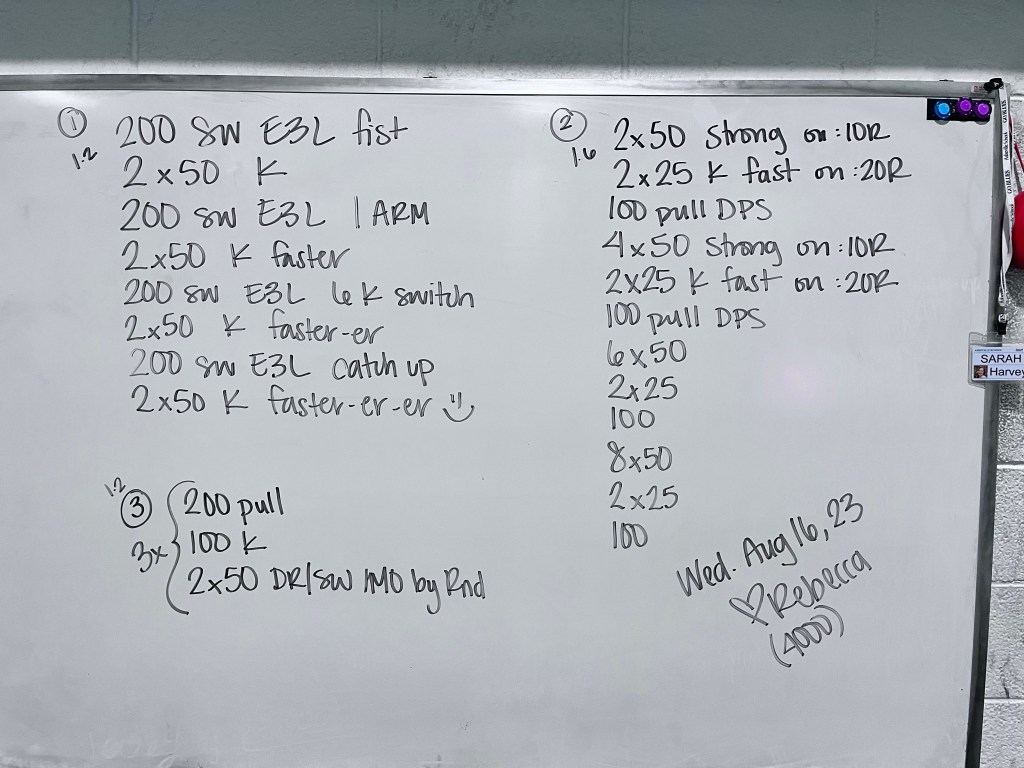 ① 200 SW E3L fist
1.2
2x50 K
200 SW E3L 1 ARM
2x50 K faster
200 SW E3L 6 K switch
2x50 K faster-er
200 SW E3L catch up
2x50 K faster-er-er
1.2
③ 200 pull
3x 100 K
2x50 DR/SW IMO by Rnd
② 2x50 strong on :10R
1.6
2x25 K fast on :20R
100 pull DPS
4x50 strong on :10R
2x25 K fast on :20R
100 pull DPS
6x50
2x25
100
8x50
2x25
100
Wed. Aug 16, 23
♡Rebecca
(4000)
SARAH
Harvey